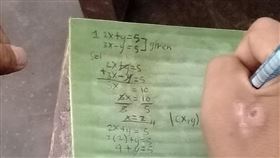 1 2x+y=5
3x-y=5 ] given
Sol
2x+y=5
+3x-y=5
5x = 10
5x = 10
5 5
x=2
(x,y)
2x+y=5
2(2)+y=5
4+y=5